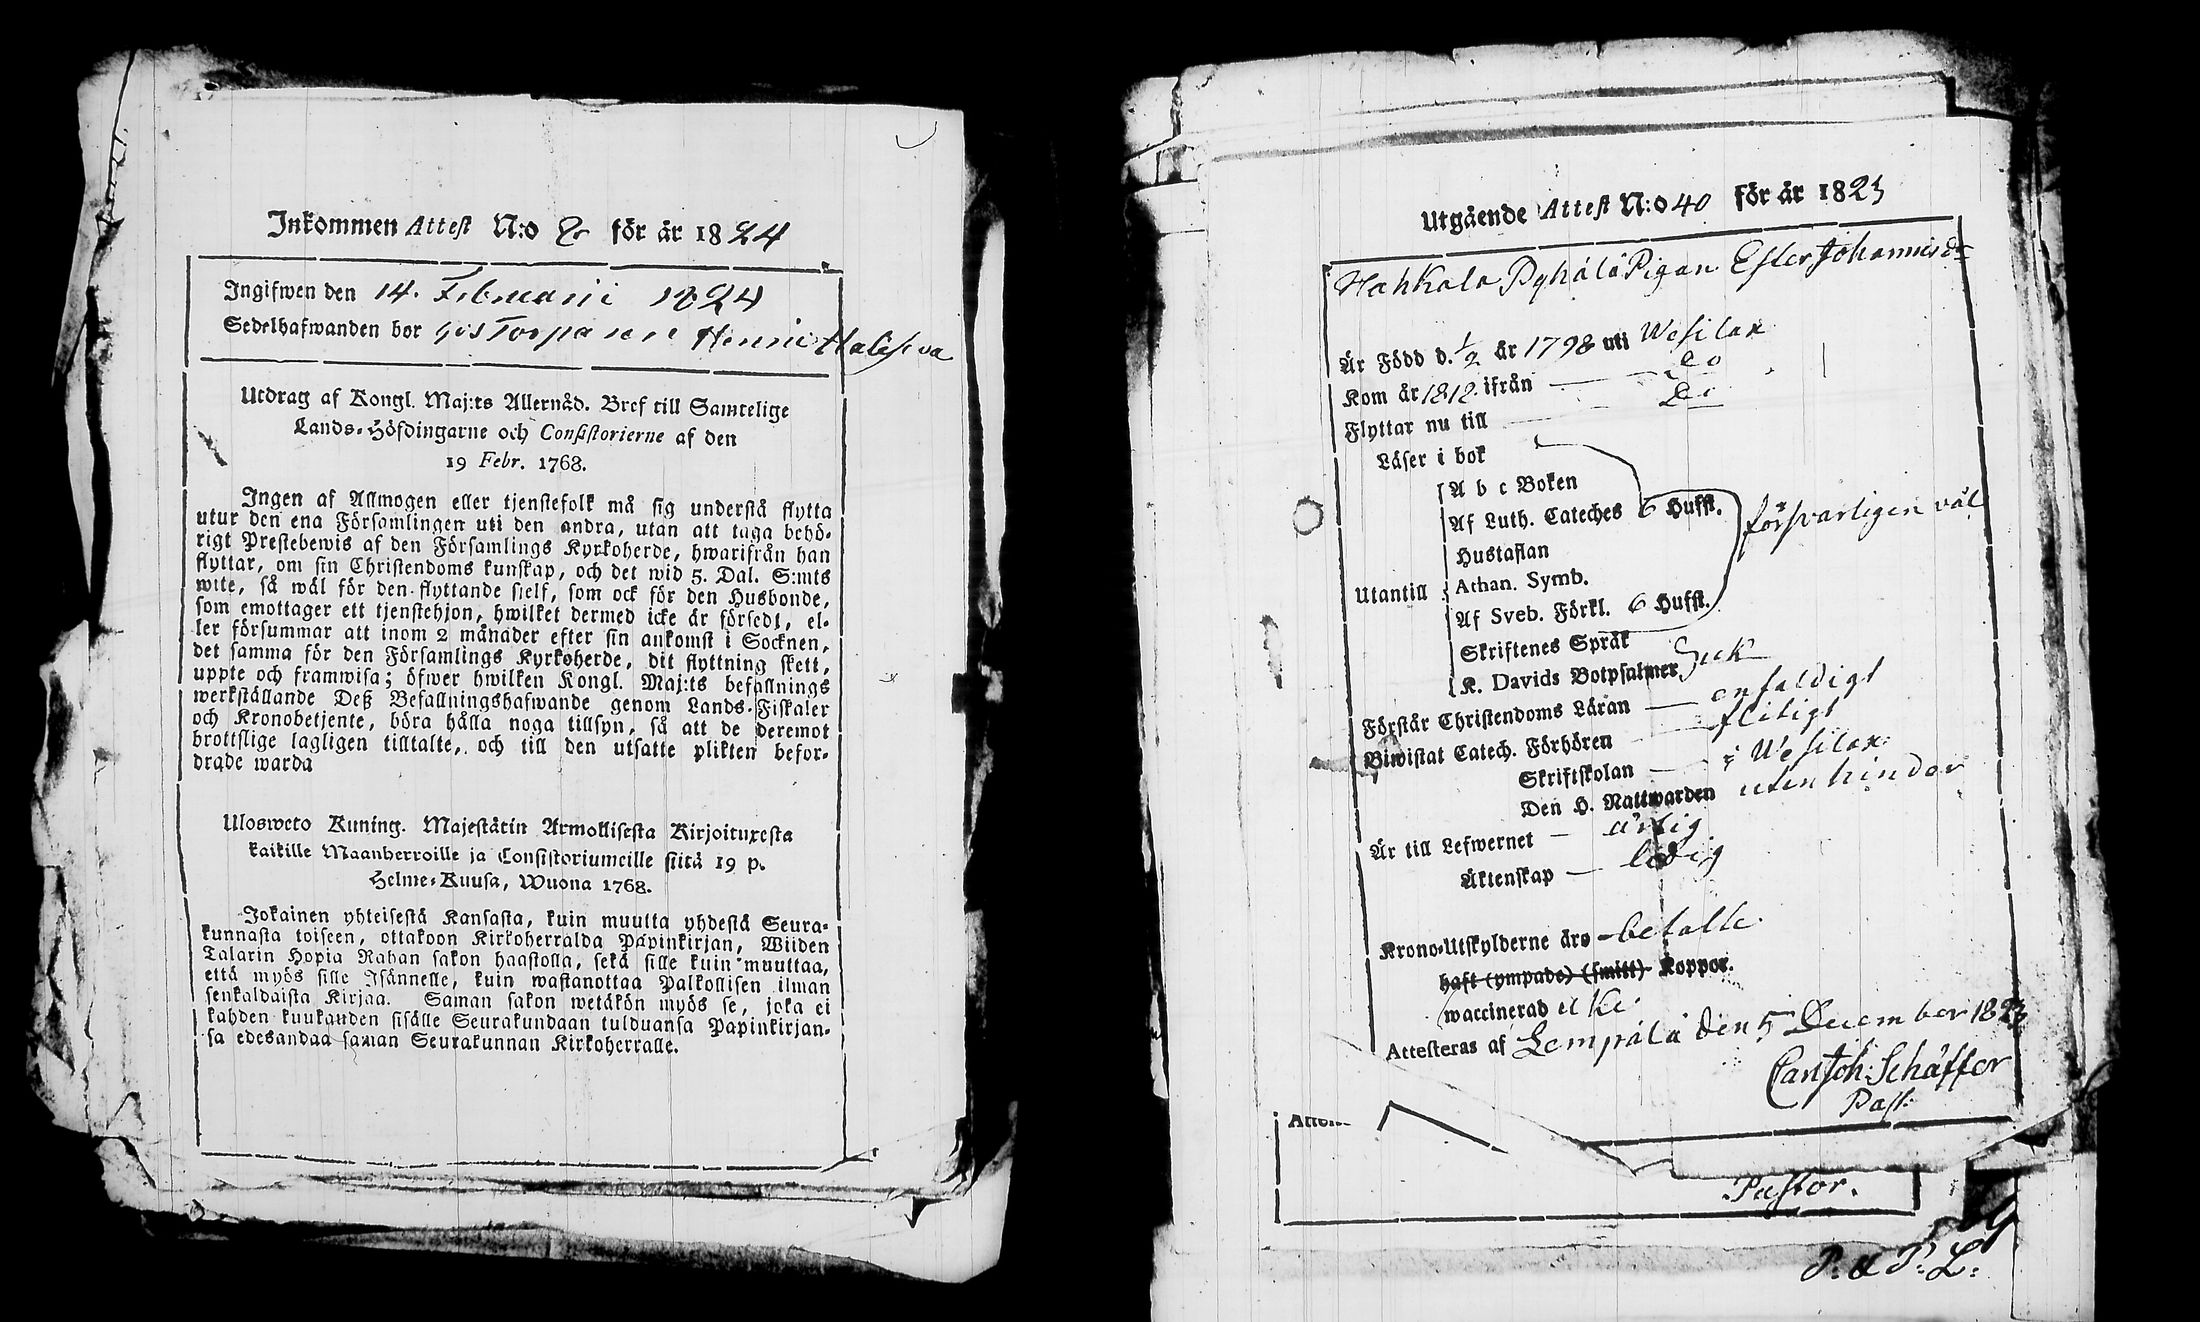 Inkommen Attest N:o 2 för år 1824
Ingifwen den 14. Februarii 1824
Sedelhafwanden bor hos Torparen Henric
Utdrag af Kongl. Maj:ts Allernåd. Bref till Samtelige
Lands-Höfdingarne och Consistorierne af den
19 Febr. 1768.
Ingen af Allmogen eller tjenstefolk må sig understå flytta
utur den ena Församlingen uti den andra, utan att taga behö-
rigt Prestebewis af den Församlings Kyrkoherde, hwarifrån han
flyttar, om sin Christendoms kunskap, och det wid 5. Dal. S:mts
wite, så wäl för den flyttande sielf, som ock för den Husbonde,
som emottager ett tjenstehjon, hwilket dermed icke är försedt, el-
ler försummar att inom 2 månader efter sin ankomst i Socknen,
det samma för den Församlings Kyrkoherde, dit flyttning skett,
uppte och framwisa; öfwer hwilken Kongl. Maj:ts befallnings
werkställande Deß Befallningshafwande genom Lands-Fiskaler
och Kronobetjente, böra hålla noga tillsyn, så att de deremot
brottslige lagligen tilltalte, och till den utsatte plikten befor-
drade warda
Ulosweto Kuning. Majestätin Armollisesta Kirjoituxesta
kaikille Maanherroille ja Consistoriumeille siitä 19 p.
Helme-Kuusa, Wuona 1768.
Jokainen yhteisestä Kansasta, kuin muutta yhdestä Seura-
kunnasta toiseen, ottakoon Kirkoherralda Papinkirjan, Wiiden
Talarin Hopia Rahan sakon haastolla, sekä sille kuin muuttaa,
että myös sille Isännelle, kuin wastanottaa Palkollisen ilman
senkaldaista Kirjaa. Saman sakon wetäkön myös se, joka ei
kahden kuukauden sisälle Seurakundaan tulduansa Papinkirjan-
sa edesandaa saman Seurakunnan Kirkoherralle.
Utgående Attest N:o 40 för år 1823
Hahkala Pyhälä Pigan Ester Johannisdr
Är Född d. 1/2 år 1798 uti Wesilax
Kom år 1818 ifrån — Do
Flyttar nu till — Do
Läser i bok
A b c Boken
Af Luth. Cateches 6 Hufst. försvarligen väl
Hustaflan
Utantill Athan. Symb.
Af Sveb. Förkl. 6 Hufst.
Skriftenes Språk
K. Davids Botpsalmer
Förstår Christendoms Läran — enfaldigt
Biwistat Catech. Förhören — flitigt
Skriftskolan — i Wesilax
Den H. Nattwarden utan hinder
Är till Lefwernet — ärlig
Äktenskap — ledig
Krono-Utskylderne äro — betalte
haft (ympade) (smitt) Koppor.
waccinerad
Attesteras af Lempälä den 5 December 1823
Carl Joh: Schäffer
Past:
Pastor.
P: U P: L: